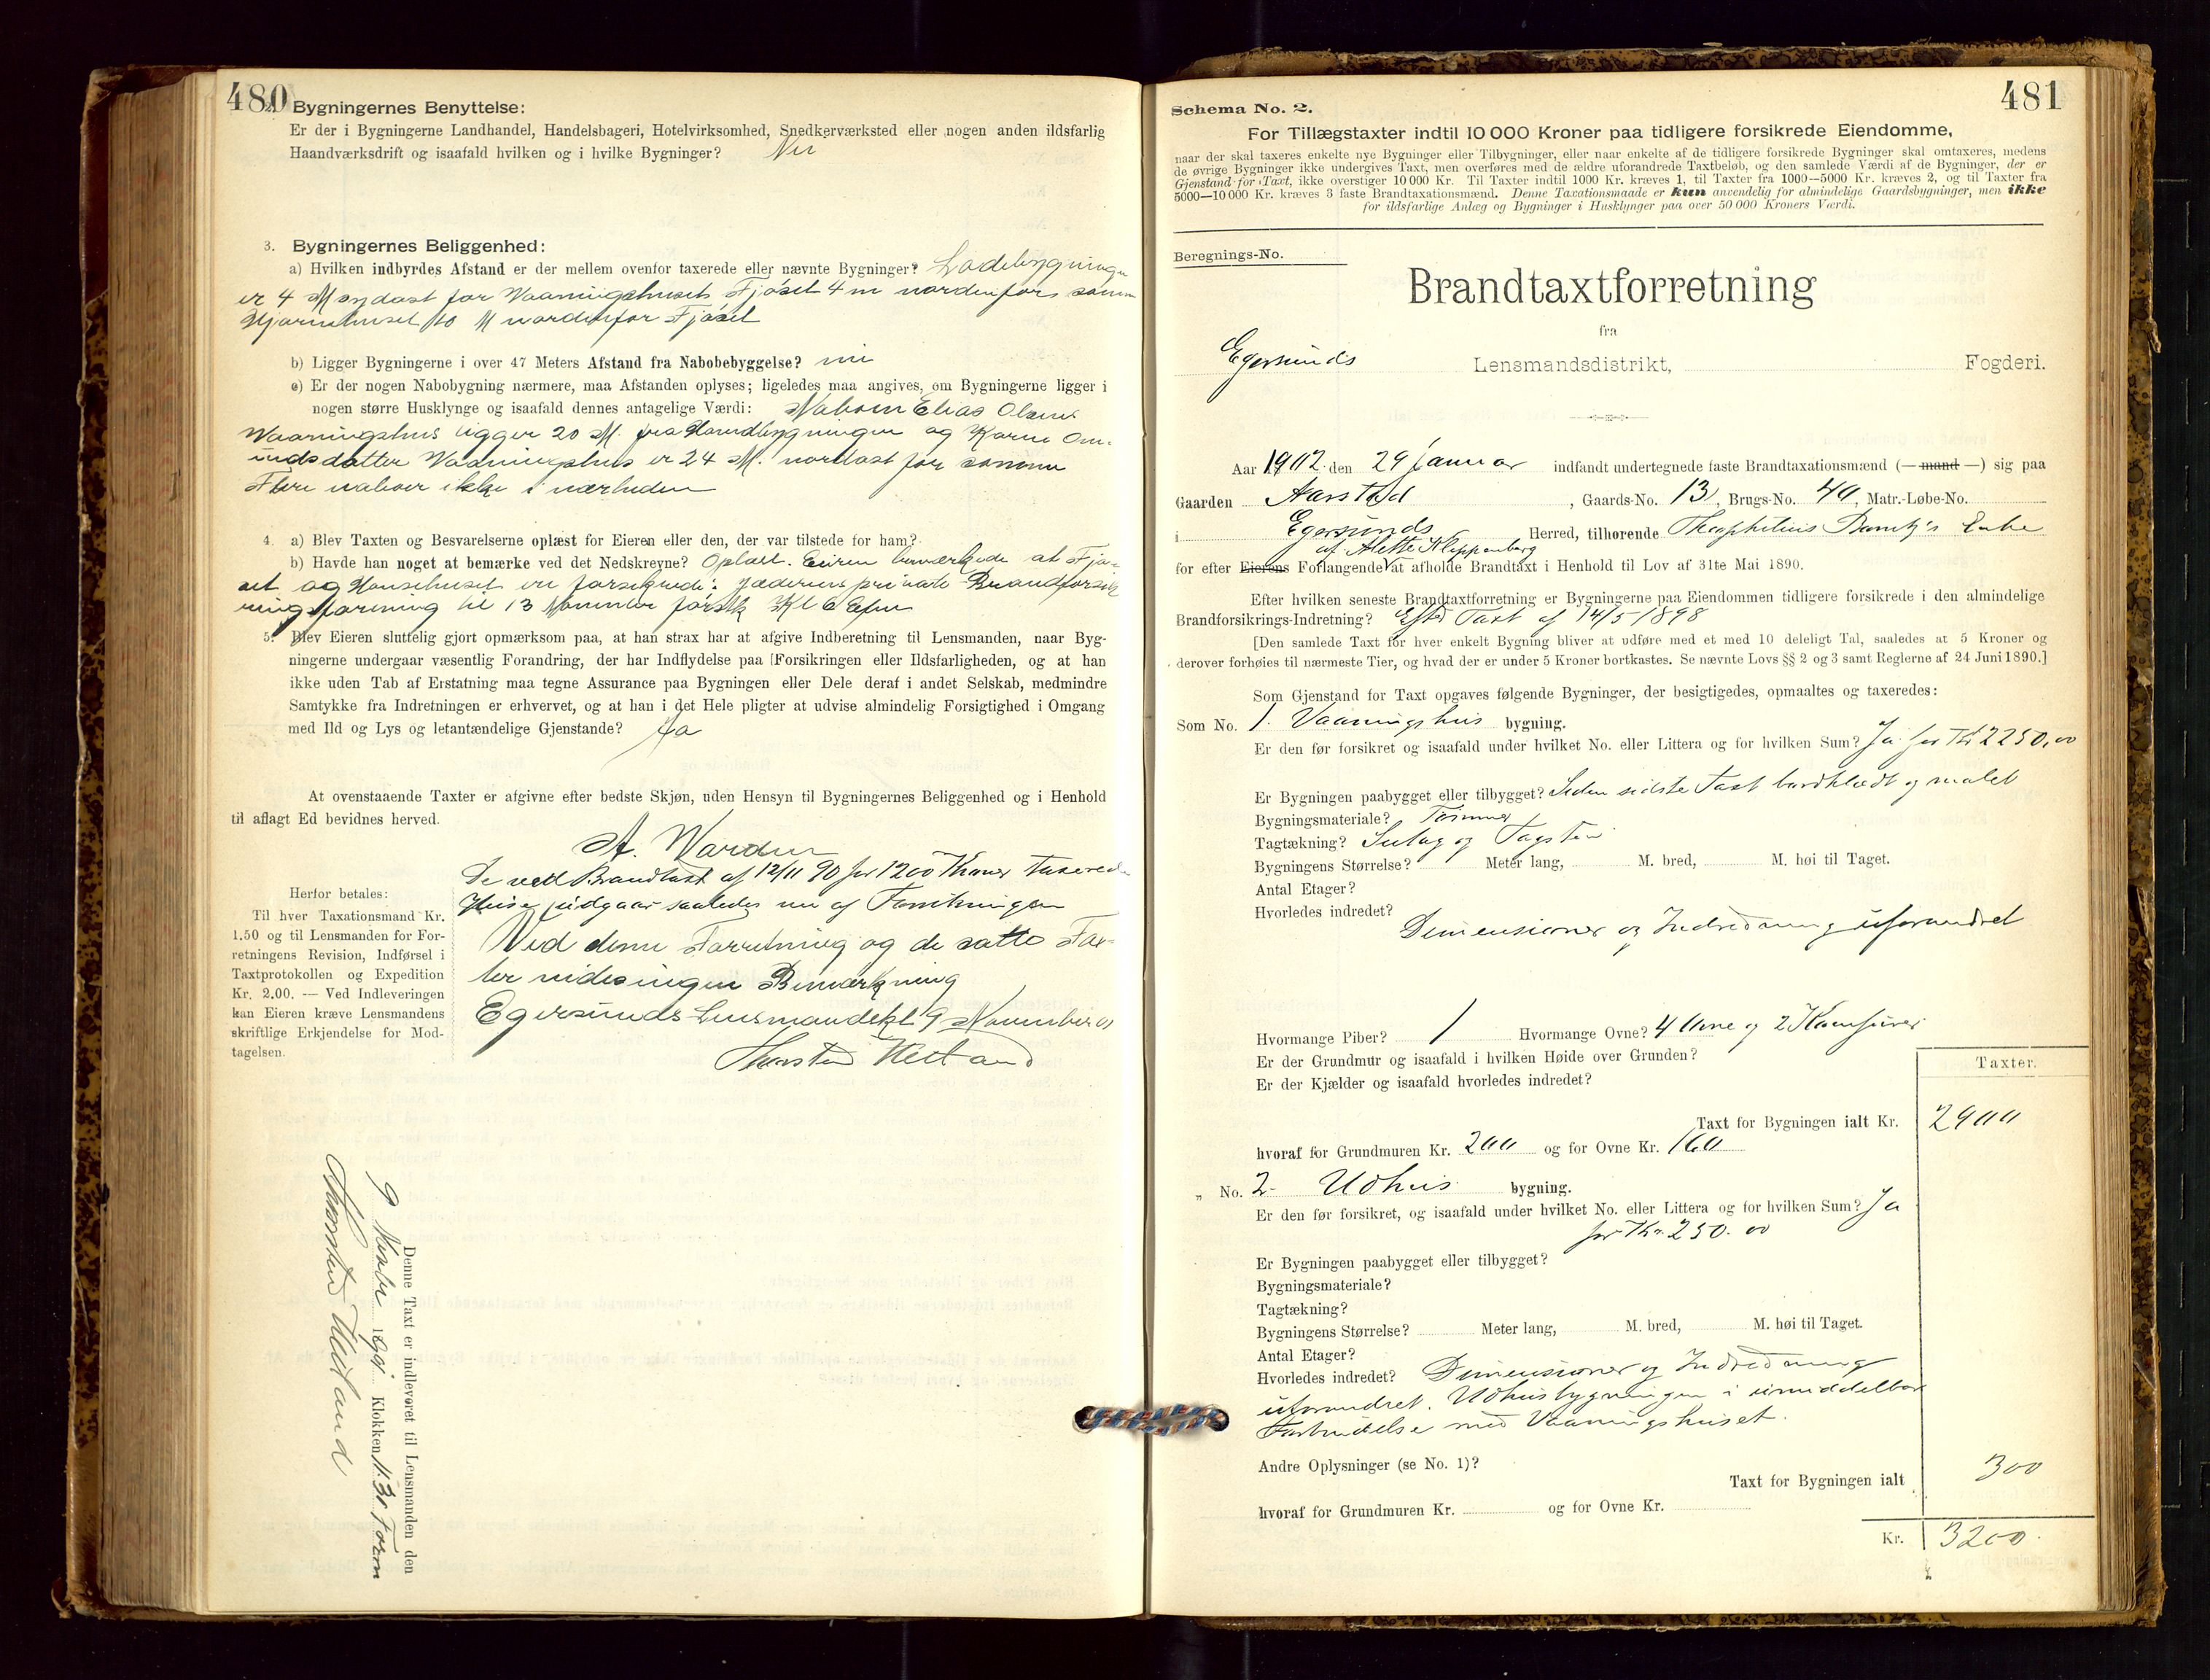 480
2. Bygningernes Benyttelse:
Er der i Bygningerne Landhandel, Handelsbageri, Hotelvirksomhed, Snedkerværksted eller nogen anden ildsfarlig
Haandværksdrift og isaafald hvilken og i hvilke Bygninger? Nei
3. Bygningernes Beliggenhed:
a) Hvilken indbyrdes Afstand er der mellem ovenfor taxerede eller nævnte Bygninger? Ladebygningen
er 4 M sydost for Vaaningshuset Fjøset 4 m nordenfor samme
Hjørnehuset 10 M nordenfor Fjøset
b) Ligger Bygningerne i over 47 Meters Afstand fra Nabobebyggelse? nei
c) Er der nogen Nabobygning nærmere, maa Afstanden oplyses; ligeledes maa angives, om Bygningerne ligger i
nogen større Husklynge og isaafald dennes antagelige Værdi: Naboen Elias Olsens
Vaaningshus ligger 20 M. fra Hovedbygningen og Karen Om-
undsdatter Vaaningshus er 24 M. nordost for samme
Flere naboer ikke i nærheden
4. a) Blev Taxten og Besvarelserne oplæst for Eieren eller den, der var tilstede for ham?
b) Havde han noget at bemærke ved det Nedskrevne? Oplæst. Eieren bemærkede at Fjø-
set og Hønsehuset er forsikrede i Jæderens private Brandforsik
ringsforening til 13 November førstk Kl 6 Efm
5. Blev Eieren sluttelig gjort opmærksom paa, at han strax har at afgive Indberetning til Lensmanden, naar Byg-
ningerne undergaar væsentlig Forandring, der har Indflydelse paa Forsikringen eller Ildsfarligheden, og at han
ikke uden Tab af Erstatning maa tegne Assurance paa Bygningen eller Dele deraf i andet Selskab, medmindre
Samtykke fra Indretningen er erhvervet, og at han i det Hele pligter at udvise almindelig Forsigtighed i Omgang
med Ild og Lys og letantændelige Gjenstande? Ja
At ovenstaaende Taxter er afgivne efter bedste Skjøn, uden Hensyn til Bygningernes Beliggenhed og i Henhold
til aflagt Ed bevidnes herved.
A. Warden
De ved Brandtaxt af 12/11 90 for 1200 Kroner taxerede
Huse udgaar saaledes nu af Forsikringen
Ved denne Forretning og de satte Tax-
ter vides ingen Bemærkning
Egersunds Lensmandskt 9 November 01
Thorsten Hetland
Herfor betales:
Til hver Taxationsmand Kr.
1.50 og til Lensmanden for For-
retningens Revision, Indførsel i
Taxtprotokollen og Expedition
Kr. 2.00. — Ved Indleveringen
kan Eieren kræve Lensmandens
skriftlige Erkjendelse for Mod-
tagelsen.
Denne Taxt er indleveret til Lensmanden den
9 Novbr 1901 Klokken 11.30 Form
Thorsten Hetland
481
Schema No. 2.
For Tillægstaxter indtil 10 000 Kroner paa tidligere forsikrede Eiendomme,
naar der skal taxeres enkelte nye Bygninger eller Tilbygninger, eller naar enkelte af de tidligere forsikrede Bygninger skal omtaxeres, medens
de øvrige Bygninger ikke undergives Taxt, men overføres med de ældre uforandrede Taxtbeløb, og den samlede Værdi af de Bygninger, der er
Gjenstand for Taxt, ikke overstiger 10 000 Kr. Til Taxter indtil 1000 Kr. kræves 1, til Taxter fra 1000—5000 Kr. kræves 2, og til Taxter fra
5000—10 000 Kr. kræves 3 faste Brandtaxationsmænd. Denne Taxationsmaade er kun anvendelig for almindelige Gaardsbygninger, men ikke
for ildsfarlige Anlæg og Bygninger i Husklynger paa over 50 000 Kroners Værdi.
Beregnings-No.
Brandtaxtforretning
fra
Egersunds Lensmandsdistrikt, Fogderi.
Aar 1902 den 29 Januar indfandt undertegnede faste Brandtaxationsmænd (— mand —) sig paa
Gaarden Aarstad, Gaards-No. 13, Brugs-No. 40, Matr.-Løbe-No.
i Egersunds Herred, tilhørende Theophelius Bantz's Enke
af Alette Kleppenberg
for efter Eierens Forlangende at afholde Brandtaxt i Henhold til Lov af 31te Mai 1890.
Efter hvilken seneste Brandtaxtforretning er Bygningerne paa Eiendommen tidligere forsikrede i den almindelige
Brandforsikrings-Indretning? Efter Taxt af 14/5 1898
[Den samlede Taxt for hver enkelt Bygning bliver at udføre med et med 10 deleligt Tal, saaledes at 5 Kroner og
derover forhøies til nærmeste Tier, og hvad der er under 5 Kroner bortkastes. Se nævnte Lovs §§ 2 og 3 samt Reglerne af 24 Juni 1890.]
Som Gjenstand for Taxt opgaves følgende Bygninger, der besigtigedes, opmaaltes og taxeredes:
Som No. 1. Vaaningshus bygning.
Er den før forsikret og isaafald under hvilket No. eller Littera og for hvilken Sum? Ja for Kr 2250,00
Er Bygningen paabygget eller tilbygget? Siden sidste Taxt bordklædt og malet
Bygningsmateriale? Tømmer
Tagtækning? Sutag og Tagsten
Bygningens Størrelse? Meter lang, M. bred, M. høi til Taget.
Antal Etager?
Hvorledes indredet?
Dimensioner og Indredning uforandret
Hvormange Piber? 1 Hvormange Ovne? 4 Ovne og 2 Komfurer
Er der Grundmur og isaafald i hvilken Høide over Grunden?
Er der Kjælder og isaafald hvorledes indredet?
Taxter.
Taxt for Bygningen ialt Kr. 2900
hvoraf for Grundmuren Kr. 200 og for Ovne Kr. 160
„ No. 2- Udhus bygning.
Er den før forsikret, og isaafald under hvilket No. eller Littera og for hvilken Sum? Ja
for Kr. 250.00
Er Bygningen paabygget eller tilbygget?
Bygningsmateriale?
Tagtækning?
Bygningens Størrelse? Meter lang, M. bred, M. høi til Taget.
Antal Etager?
Hvorledes indredet? Dimensioner og Indredning
uforandret. Udhusbygningen i umiddelbar
Forbindelse med Vaaningshuset.
Andre Oplysninger (se No. 1)?
Taxt for Bygningen ialt 300
hvoraf for Grundmuren Kr. og for Ovne Kr.
Kr. 3200.